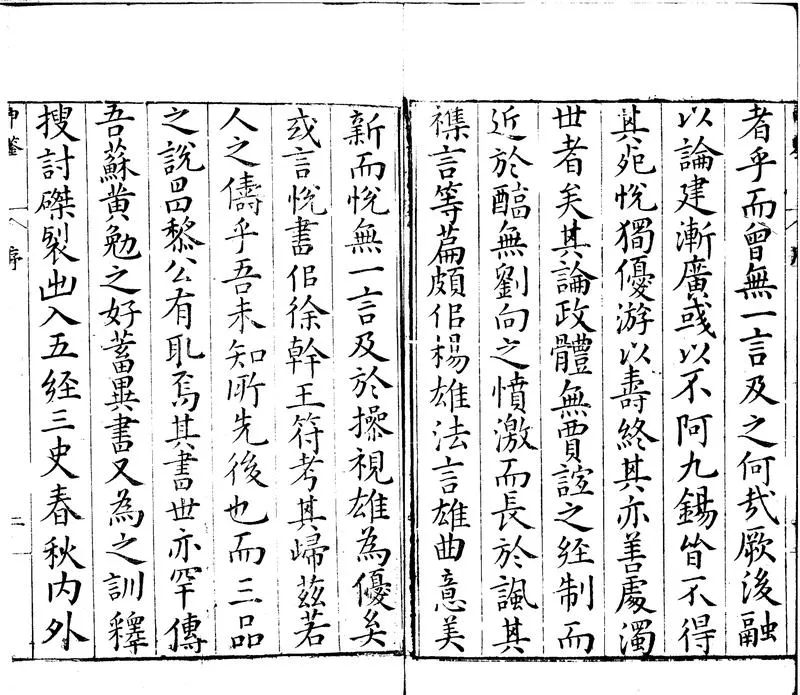 者乎而曾無一言及之何哉厥後融
以論建漸廣彧以不阿九錫皆不得
其死悅獨優游以壽終其亦善處濁
世者矣其論政體無賈誼之經制而
近於醕無劉向之憤激而長於諷其
襍言等篇頗佀楊雄法言雄曲意美
新而悅無一言及於操視雄為優矣
或言悅書佀徐幹王符考其歸茲若
人之儔乎吾未知所先後也而三品
之說昌黎公有取焉其書世亦罕傳
吾蘇黃勉之好蓄異書又為之訓釋
搜討磔裂出入五經三史春秋內外
申鋻 序 二